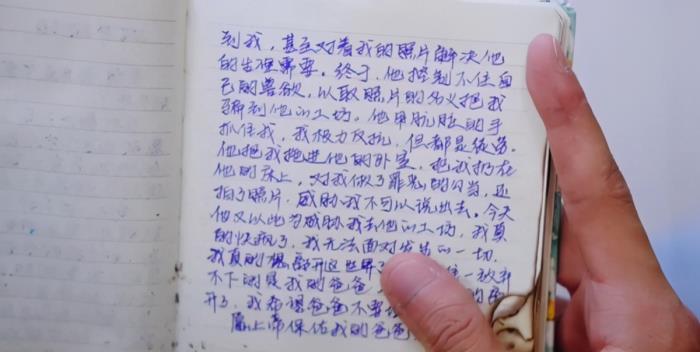 到我，甚至对着我的照片解决他
的生理需要。终于，他控制不住自
己的兽欲，以取照片的名义把我
骗到他的工坊。他用肮脏的手
抓住我，我极力反抗，但都是徒劳。
他把我拖进他的卧室，把我扔在
他的床上，对我做了罪恶的勾当，还
拍了照片，威胁我不可以说出去。今天
他又以此为威胁我去他的工坊，我真
的快疯了，我无法面对发生的一切。
我真的想离开这世界了
不下的是我的爸爸
开了，我希望爸爸不要
愿上帝保佑我的爸爸